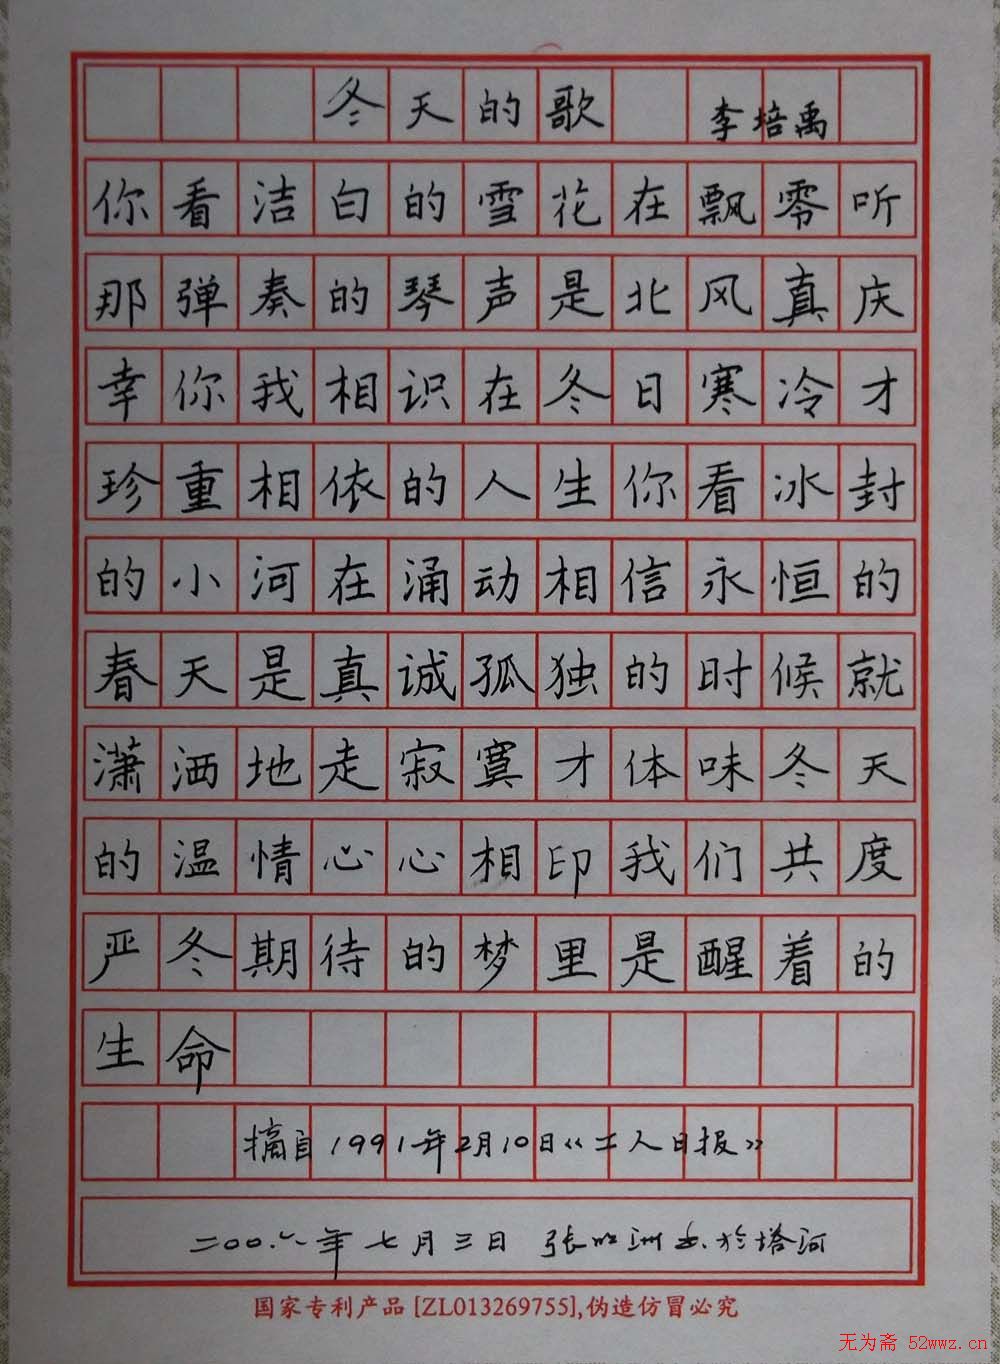 冬天的歌 李培禹
你看洁白的雪花在飘零听
那弹奏的琴声是北风真庆
幸你我相识在冬日寒冷才
珍重相依的人生你看冰封
的小河在涌动相信永恒的
春天是真诚孤独的时候就
潇洒地走寂寞才体味冬天
的温情心心相印我们共度
严冬期待的梦里是醒着的
生命
摘自1991年2月10日《工人日报》
二00六年七月三日 张 洲书于塔河
国家专利产品 [ZL013269755],伪造仿冒必究
无为斋 52wwz.cn